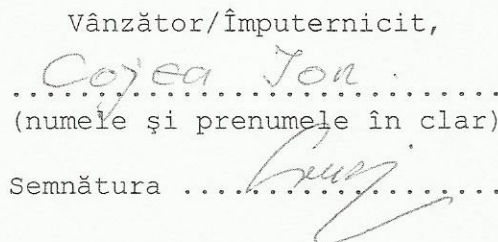 Vânzător/Împuternicit,
Cojea Ion
(numele şi prenumele în clar)
Semnătura